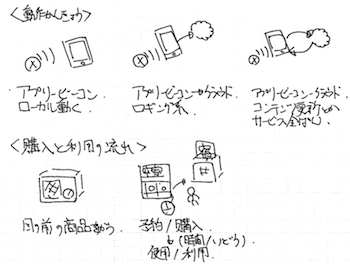 <動作かんきょう>
アプリ-ビーコン
ローカル動く.
アプリ-ビーコン-クラウド
ロギング系
アプリ-ビーコン-クラウド.
コンテンツ更新とか
サービス全体.
<購入と利用の流れ>
目の前の商品
予約/購入
(時間/いどう)
使用/利用